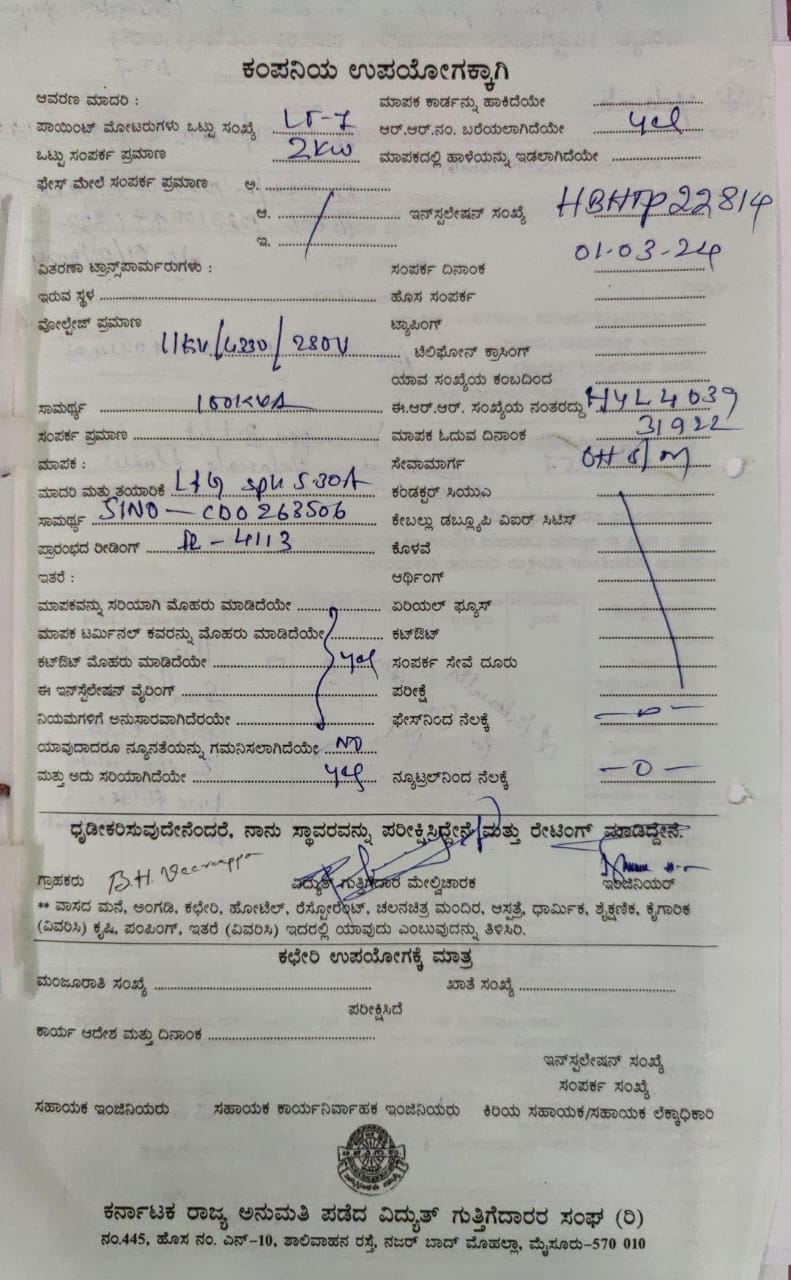 ಕಂಪನಿಯ ಉಪಯೋಗಕ್ಕಾಗಿ
ಆವರಣ ಮಾದರಿ : ಮಾಪಕ ಕಾರ್ಡನ್ನು ಹಾಕಿದೆಯೇ
ಪಾಯಿಂಟ್ ಮೋಟರುಗಳು ಒಟ್ಟು ಸಂಖ್ಯೆ LT-7 ಆರ್.ಆರ್.ನಂ. ಬರೆಯಲಾಗಿದೆಯೇ yes
ಒಟ್ಟು ಸಂಪರ್ಕ ಪ್ರಮಾಣ 2KW ಮಾಪಕದಲ್ಲಿ ಹಾಳೆಯನ್ನು ಇಡಲಾಗಿದೆಯೇ
ಫೇಸ್ ಮೇಲೆ ಸಂಪರ್ಕ ಪ್ರಮಾಣ ಅ.
ಆ. ಇನ್‌ಸ್ಪಲೇಷನ್ ಸಂಖ್ಯೆ HBHTP22814
ಇ.
ವಿತರಣಾ ಟ್ರಾನ್ಸ್‌ಪಾರ್ಮರುಗಳು : ಸಂಪರ್ಕ ದಿನಾಂಕ 01-03-24
ಇರುವ ಸ್ಥಳ ಹೊಸ ಸಂಪರ್ಕ
ವೋಲ್ಟೇಜ್ ಪ್ರಮಾಣ 11KV/ ಟ್ಯಾಪಿಂಗ್
ಟೆಲಿಫೋನ್ ಕ್ರಾಸಿಂಗ್
ಯಾವ ಸಂಖ್ಯೆಯ ಕಂಬದಿಂದ
ಸಾಮರ್ಥ್ಯ 100KVA ಈ.ಆರ್.ಆರ್. ಸಂಖ್ಯೆಯ ನಂತರದ್ದು HYL4039
ಸಂಪರ್ಕ ಪ್ರಮಾಣ ಮಾಪಕ ಓದುವ ದಿನಾಂಕ 31922
ಮಾಪಕ : ಸೇವಾಮಾರ್ಗ
ಮಾದರಿ ಮತ್ತು ತಯಾರಿಕೆ L&G ಕಂಡಕ್ಟರ್ ಸಿಯುಎ
ಸಾಮರ್ಥ್ಯ ಕೇಬಲ್ಲು ಡಬ್ಲ್ಯೂಪಿ ವಿಐರ್ ಸಿಟಿಸ್
ಪ್ರಾರಂಭದ ರೀಡಿಂಗ್ ಕೊಳವೆ
ಇತರೆ : ಆರ್ಥಿಂಗ್
ಮಾಪಕವನ್ನು ಸರಿಯಾಗಿ ಮೊಹರು ಮಾಡಿದೆಯೇ ಏರಿಯಲ್ ಫ್ಯೂಸ್
ಮಾಪಕ ಟರ್ಮಿನಲ್ ಕವರನ್ನು ಮೊಹರು ಮಾಡಿದೆಯೇ ಕಟ್‌ಔಟ್
ಕಟ್‌ಔಟ್ ಮೊಹರು ಮಾಡಿದೆಯೇ yes ಸಂಪರ್ಕ ಸೇವೆ ದೂರು
ಈ ಇನ್‌ಸ್ಪೆಲೇಷನ್ ವೈರಿಂಗ್ ಪರೀಕ್ಷೆ
ನಿಯಮಗಳಿಗೆ ಅನುಸಾರವಾಗಿದೆರಯೇ ಫೇಸ್‌ನಿಂದ ನೆಲಕ್ಕೆ —0—
ಯಾವುದಾದರೂ ನ್ಯೂನತೆಯನ್ನು ಗಮನಿಸಲಾಗಿದೆಯೇ NO
ಮತ್ತು ಅದು ಸರಿಯಾಗಿದೆಯೇ yes ನ್ಯೂಟ್ರಲ್‌ನಿಂದ ನೆಲಕ್ಕೆ —0—
ಧೃಡೀಕರಿಸುವುದೇನೆಂದರೆ, ನಾನು ಸ್ಥಾವರವನ್ನು ಪರೀಕ್ಷಿಸಿದ್ದೇನೆ ಮತ್ತು ರೇಟಿಂಗ್ ಮಾಡಿದ್ದೇನೆ.
ಗ್ರಾಹಕರು B.H. Veerappa ವಿದ್ಯುತ್ ಗುತ್ತಿಗೆದಾರ ಮೇಲ್ವಿಚಾರಕ ಇಂಜಿನಿಯರ್
** ವಾಸದ ಮನೆ, ಅಂಗಡಿ, ಕಛೇರಿ, ಹೋಟೆಲ್, ರೆಸ್ಟೋರೆಂಟ್, ಚಲನಚಿತ್ರ ಮಂದಿರ, ಆಸ್ಪತ್ರೆ, ಧಾರ್ಮಿಕ, ಶೈಕ್ಷಣಿಕ, ಕೈಗಾರಿಕ
(ವಿವರಿಸಿ) ಕೃಷಿ, ಪಂಪಿಂಗ್, ಇತರೆ (ವಿವರಿಸಿ) ಇದರಲ್ಲಿ ಯಾವುದು ಎಂಬುವುದನ್ನು ತಿಳಿಸಿರಿ.
ಕಛೇರಿ ಉಪಯೋಗಕ್ಕೆ ಮಾತ್ರ
ಮಂಜೂರಾತಿ ಸಂಖ್ಯೆ ಖಾತೆ ಸಂಖ್ಯೆ
ಪರೀಕ್ಷಿಸಿದೆ
ಕಾರ್ಯ ಆದೇಶ ಮತ್ತು ದಿನಾಂಕ
ಇನ್‌ಸ್ಪಲೇಷನ್ ಸಂಖ್ಯೆ
ಸಂಪರ್ಕ ಸಂಖ್ಯೆ
ಸಹಾಯಕ ಇಂಜಿನಿಯರು ಸಹಾಯಕ ಕಾರ್ಯನಿರ್ವಾಹಕ ಇಂಜಿನಿಯರು ಕಿರಿಯ ಸಹಾಯಕ/ಸಹಾಯಕ ಲೆಕ್ಕಾಧಿಕಾರಿ
ಕರ್ನಾಟಕ ರಾಜ್ಯ ಅನುಮತಿ ಪಡೆದ ವಿದ್ಯುತ್ ಗುತ್ತಿಗೆದಾರರ ಸಂಘ (ರಿ)
ನಂ.445, ಹೊಸ ನಂ. ಎನ್-10, ಶಾಲಿವಾಹನ ರಸ್ತೆ, ನಜರ್ ಬಾದ್ ಮೊಹಲ್ಲಾ, ಮೈಸೂರು-570 010